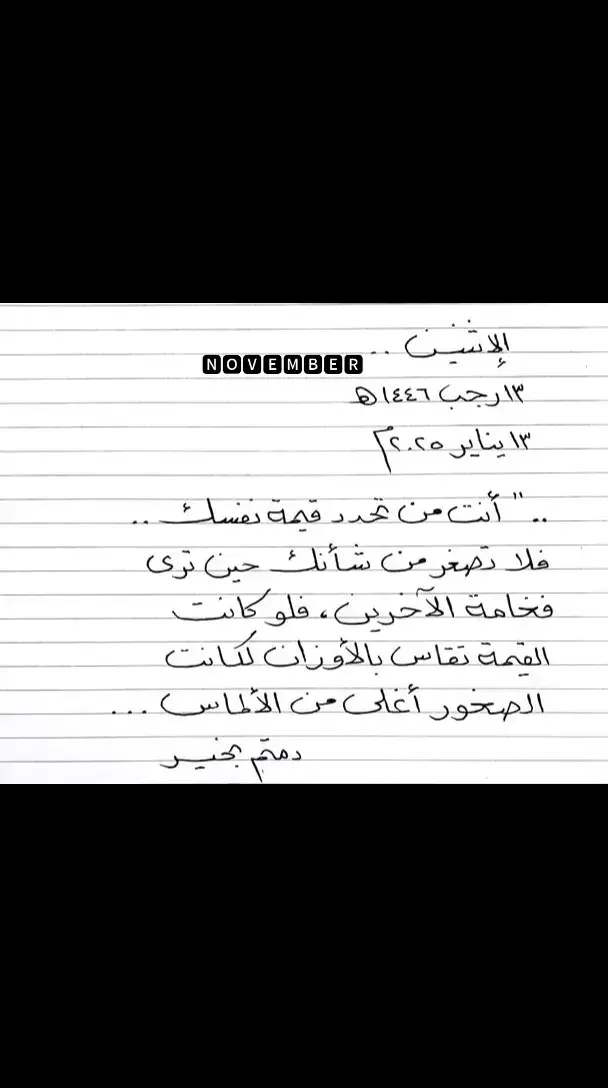 الإثنين ..
NOVEMBER
١٣ رجب ١٤٤٦ هـ
١٣ يناير ٢٠٢٥ م
.. " أنت من تحدد قيمة نفسك ..
فلا تصغر من شأنك حين ترى
فخامة الآخرين ، فلو كانت
القيمة تقاس بالأوزان لكانت
الصخور أغلى من الألماس ...
دمتم بخير